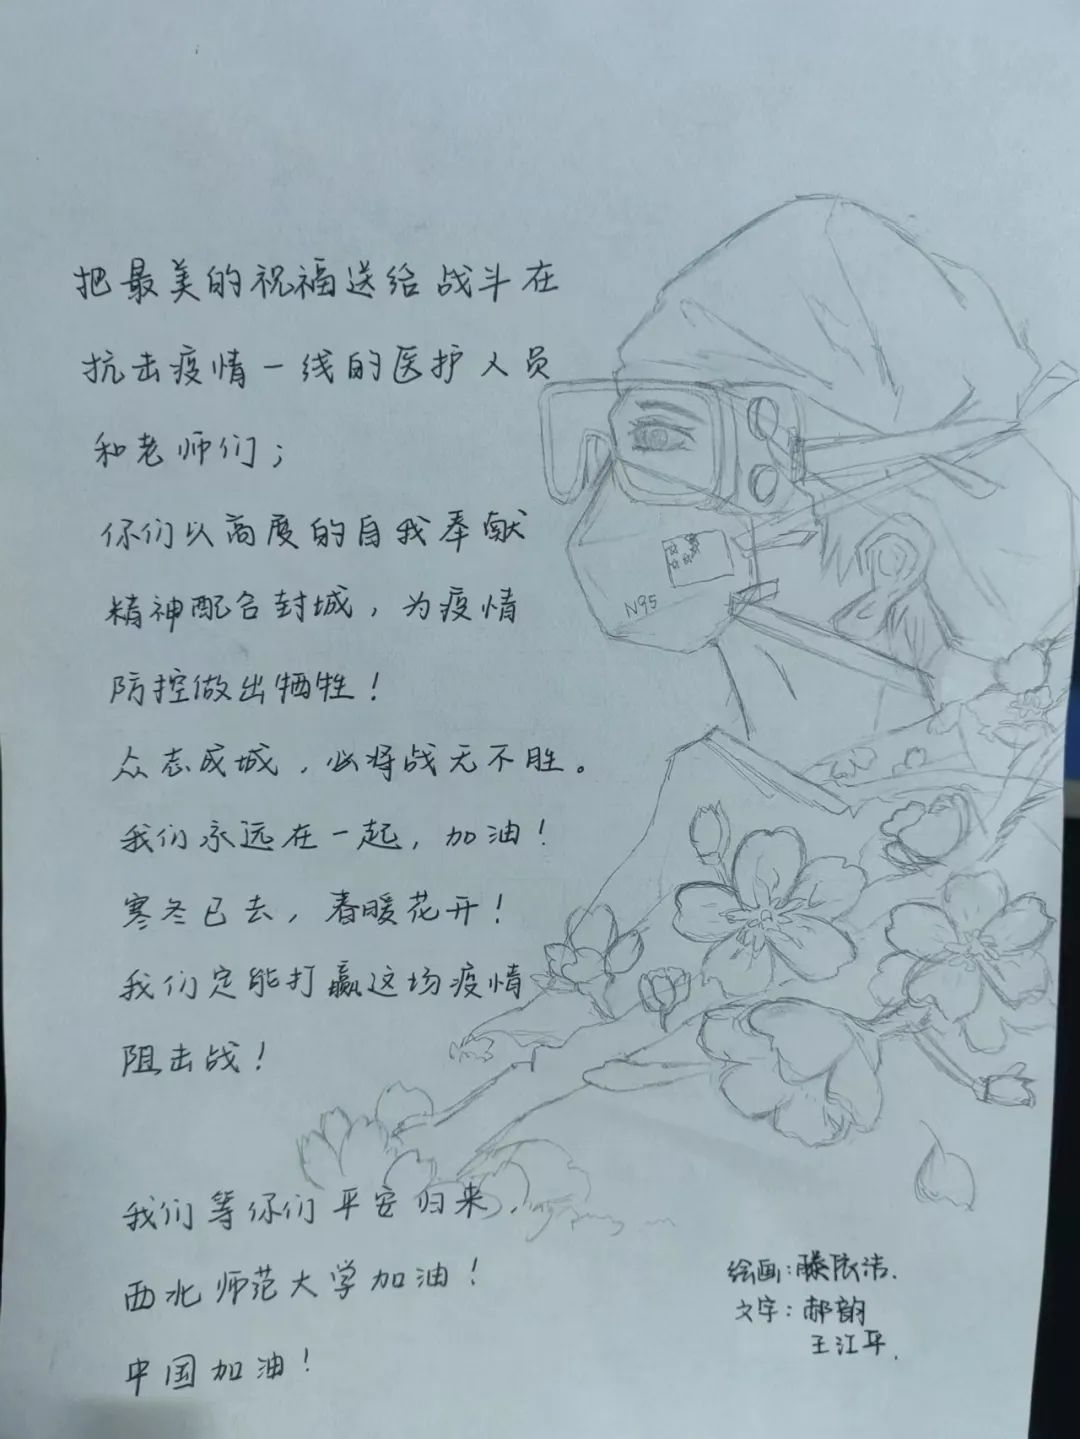 把最美的祝福送给战斗在
抗击疫情一线的医护人员
和老师们；
你们以高度的自我奉献
精神配合封城，为疫情
防控做出牺牲！
众志成城，必将战无不胜。
我们永远在一起，加油！
寒冬已去，春暖花开！
我们定能打赢这场疫情
阻击战！
我们等你们平安归来，
西北师范大学加油！
中国加油！
N95
绘画：滕依洁.
文字：郝韵
王江平.